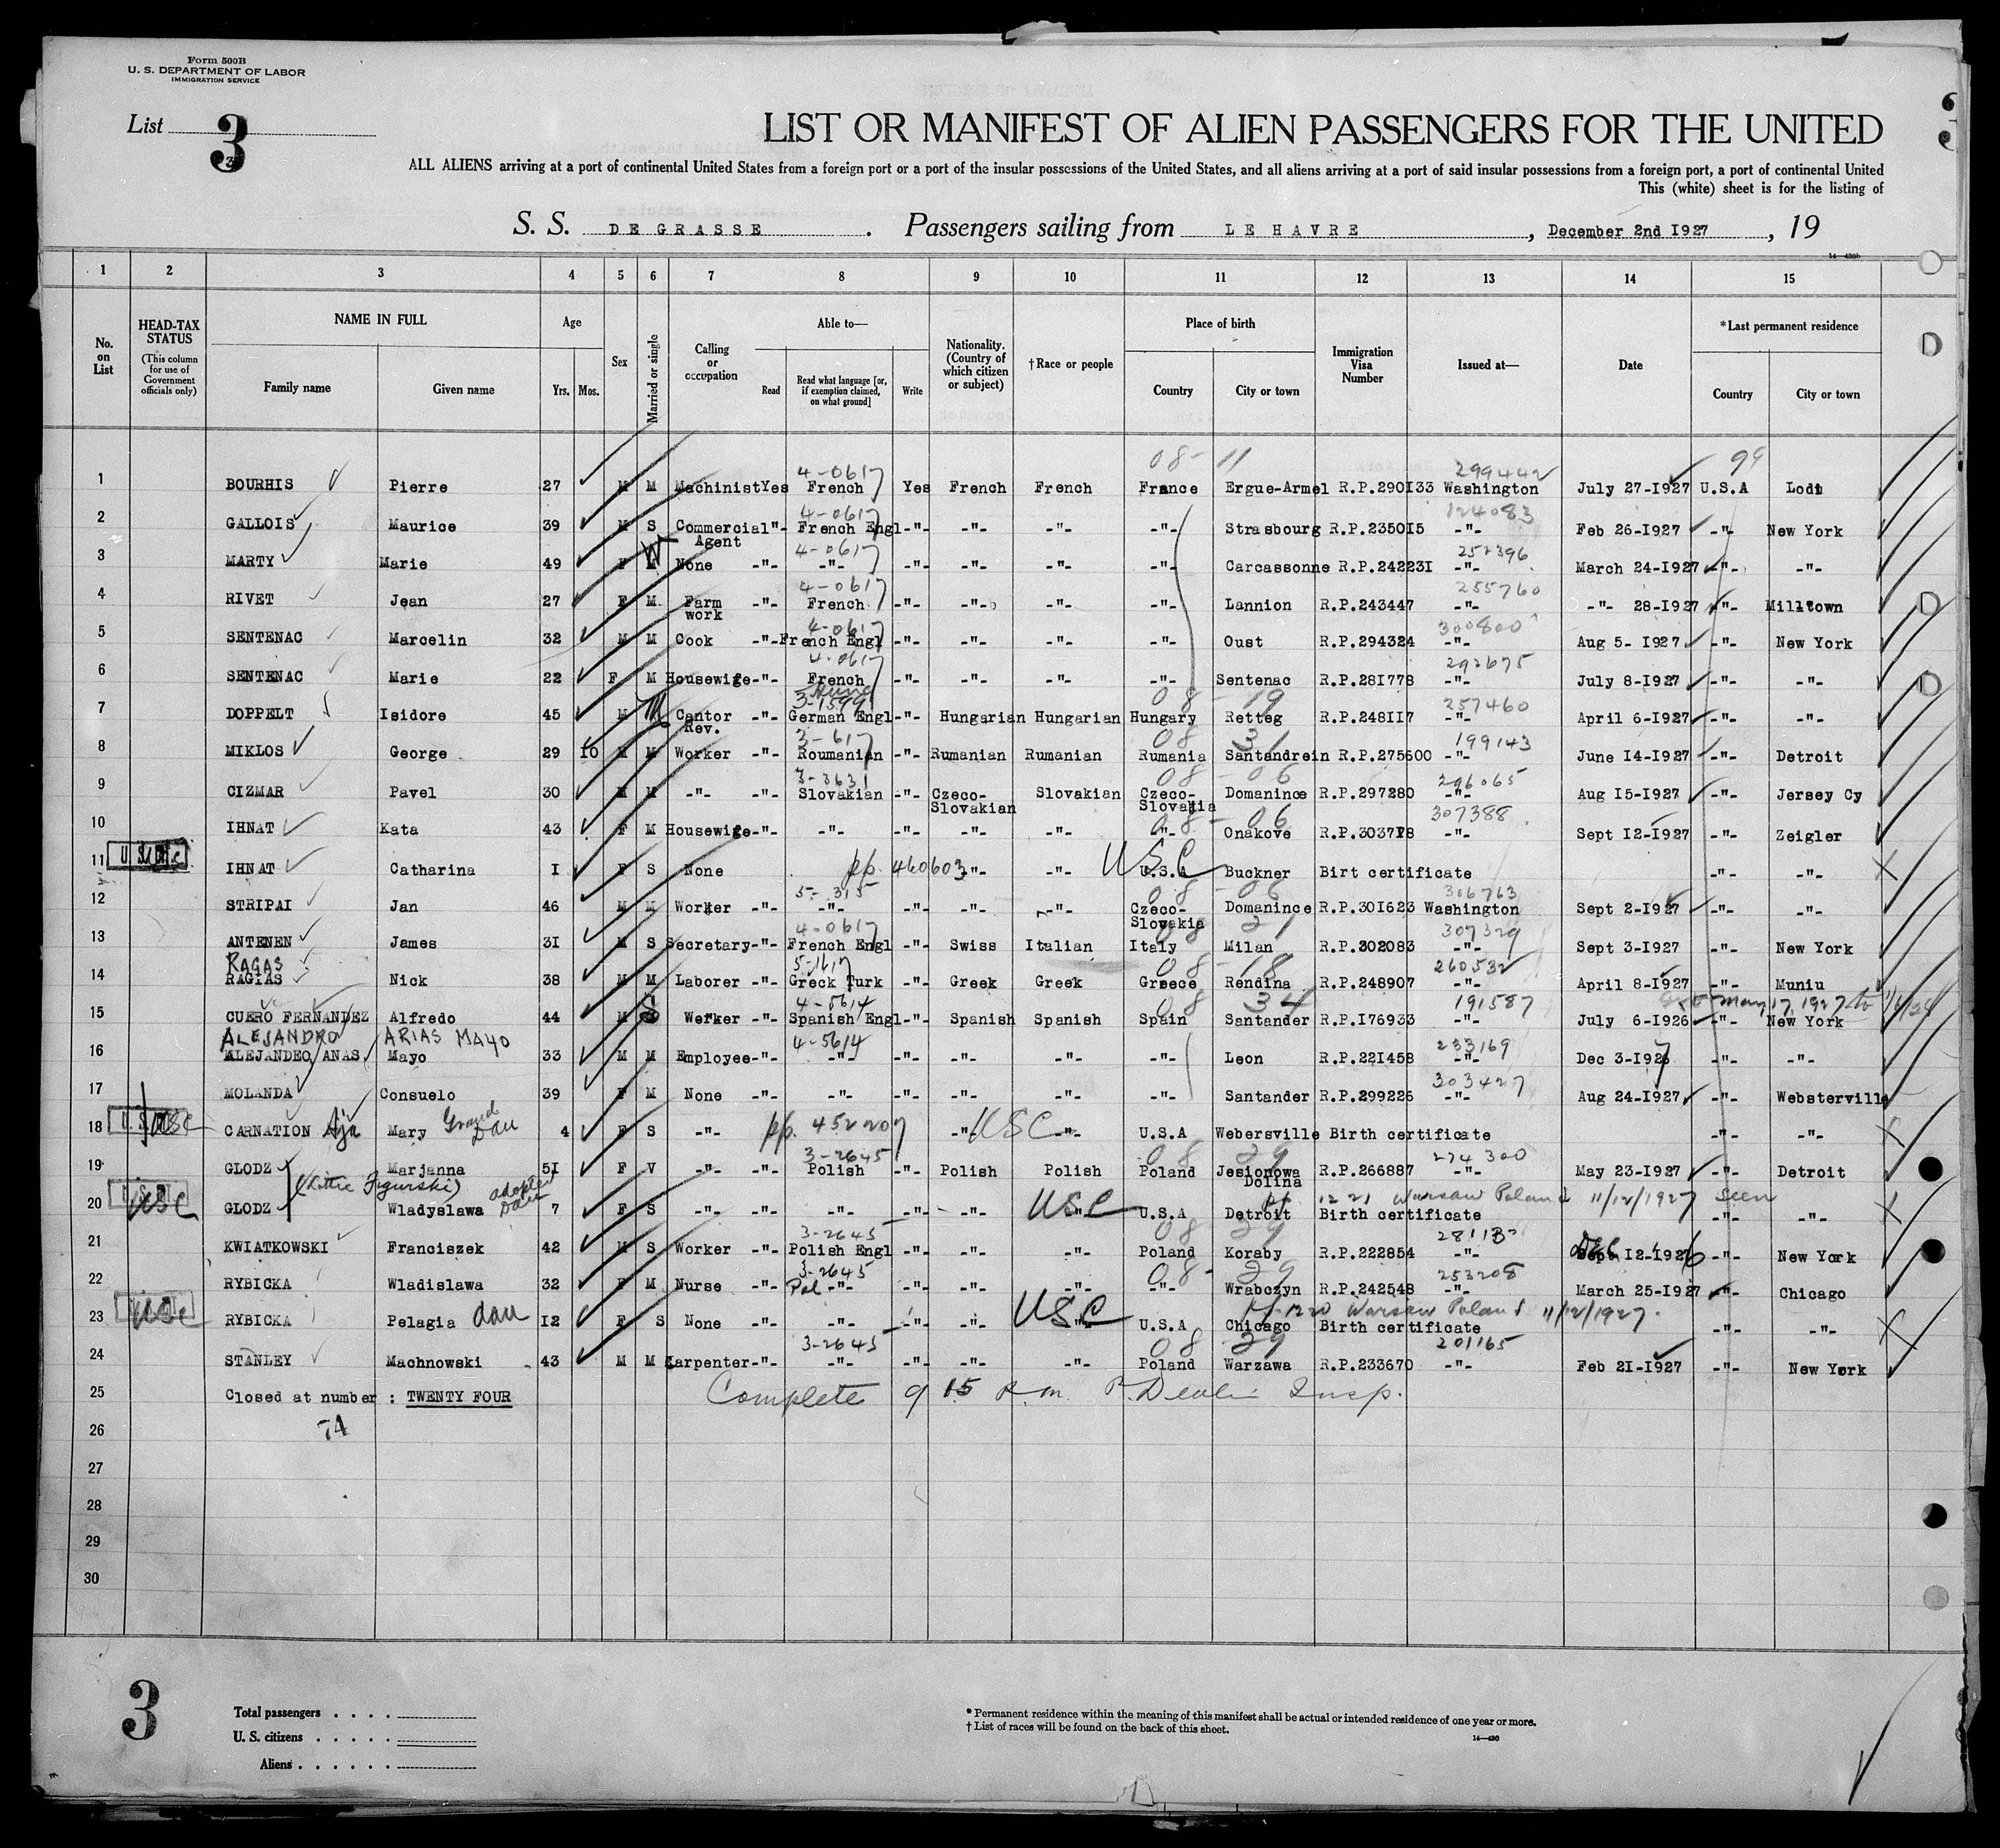 Form 500B
U. S. DEPARTMENT OF LABOR
IMMIGRATION SERVICE
List 3
3
LIST OR MANIFEST OF ALIEN PASSENGERS FOR THE UNITED
ALL ALIENS arriving at a port of continental United States from a foreign port or a port of the insular possessions of the United States, and all aliens arriving at a port of said insular possessions from a foreign port, a port of continental United
This (white) sheet is for the listing of
S. S. DE GRASSE . Passengers sailing from LE HAVRE , December 2nd 1927 , 19
14—430b
1 2 3 4 5 6 7 8 9 10 11 12 13 14 15
No. on List
HEAD-TAX STATUS (This column for use of Government officials only)
NAME IN FULL Family name Given name
Age Yrs. Mos.
Sex
Married or single
Calling or occupation
Able to— Read Read what language [or, if exemption claimed, on what ground] Write
Nationality. (Country of which citizen or subject)
†Race or people
Place of birth Country City or town
Immigration Visa Number
Issued at—
Date
*Last permanent residence Country City or town
4-0617 08-11 299442 99
1 BOURHIS Pierre 27 M M Machinist Yes French Yes French French France Ergue-Armel R.P.290133 Washington July 27-1927 U.S.A Lodi
4-0617 124083
2 GALLOIS Maurice 39 M S Commercial Agent -"- French Engl -"- -"- -"- -"- Strasbourg R.P.235015 -"- Feb 26-1927 -"- New York
4-0617 252396
3 MARTY Marie 49 F W None -"- -"- -"- -"- -"- -"- Carcassonne R.P.242231 -"- March 24-1927 -"- -"-
4-0617 255760
4 RIVET Jean 27 F M Farm work -"- French -"- -"- -"- -"- Lannion R.P.243447 -"- -"- 28-1927 -"- Milltown
4-0617 300800
5 SENTENAC Marcelin 32 M M Cook -"- French Engl -"- -"- -"- -"- Oust R.P.294324 -"- Aug 5- 1927 -"- New York
4-0617 292675
6 SENTENAC Marie 22 F M Housewife -"- French -"- -"- -"- -"- Sentenac R.P.281778 -"- July 8-1927 -"- -"-
3-1599 08-19 257460
7 DOPPELT Isidore 45 M M Cantor Rev. -"- German Engl -"- Hungarian Hungarian Hungary Retteg R.P.248117 -"- April 6-1927 -"- -"-
3-617 08 31 199143
8 MIKLOS George 29 10 M M Worker -"- Roumanian -"- Rumanian Rumanian Rumania Santandrein R.P.275600 -"- June 14-1927 -"- Detroit
3-3631 08-06 296065
9 CIZMAR Pavel 30 M M -"- -"- Slovakian -"- Czeco-Slovakian Slovakian Czeco-Slovakia Domanince R.P.297280 -"- Aug 15-1927 -"- Jersey Cy
08-06 307388
10 IHNAT Kata 43 F M Housewife -"- -"- -"- -"- -"- -"- Onakove R.P.303718 -"- Sept 12-1927 -"- Zeigler
11 IHNAT Catharina 1 F S None pp. 460603 -"- -"- USC U.S.A Buckner Birt certificate -"- -"-
5-315 08-06 306763
12 STRIPAI Jan 46 M M Worker -"- -"- -"- -"- -"- Czeco-Slovakia Domanince R.P.301623 Washington Sept 2-1927 -"- -"-
4-0617 08 21 307329
13 ANTENEN James 31 M S Secretary -"- French Engl -"- Swiss Italian Italy Milan R.P.302083 -"- Sept 3-1927 -"- New York
RAGAS 5-1617 08-18 260532
14 RAGIAS Nick 38 M M Laborer -"- Greck Turk -"- Greek Greek Greece Rendina R.P.248907 -"- April 8-1927 -"- Muniu
4-5614 08 34 191587 May 17, 1927 to
15 CUERO FERNANDEZ Alfredo 44 M S Worker -"- Spanish Engl -"- Spanish Spanish Spain Santander R.P.176933 -"- July 6-1926 -"- New York
ALEJANDRO ARIAS MAYO 4-5614 233169
16 ALEJANDEO ANAS, Mayo 33 M M Employee -"- -"- -"- -"- -"- -"- Leon R.P.221458 -"- Dec 3-1927 -"- -"-
303427
17 MOLANDA Consuelo 39 F M None -"- -"- -"- -"- -"- -"- Santander R.P.299226 -"- Aug 24-1927 -"- Websterville
18 USC CARNATION Aja Mary Grand Dau 4 F S -"- pp. 452207 -"- USC -"- U.S.A Webersville Birth certificate -"- -"-
3-2645 08 29 274300
19 GLODZ Marjanna 51 F V -"- -"- Polish -"- Polish Polish Poland Jesionowa Dolina R.P.266887 -"- May 23-1927 -"- Detroit
(Kittie Figurski) adopted Dau 1221 Warsaw Poland 11/12/1927 seen
20 USC GLODZ Wladyslawa 7 F S -"- -"- -"- -"- -"- USC U.S.A Detroit Birth certificate -"- -"-
3-2645 08 29
21 KWIATKOWSKI Franciszek 42 M S Worker -"- Polish Engl -"- -"- -"- Poland Koraby R.P.222854 -"- Dec 12-1926 -"- New York
3-2645 08-29 253208
22 RYBICKA Wladislawa 32 F M Nurse -"- Pol -"- -"- -"- -"- -"- Wrabczyn R.P.242548 -"- March 25-1927 -"- Chicago
1220 Warsaw Poland 11/12/1927.
23 USC RYBICKA Pelagia dau 12 F S None -"- -"- -"- -"- USC U.S.A Chicago Birth certificate -"- -"-
3-2645 08-29 201165
24 STANLEY Machnowski 43 M M Karpenter -"- -"- -"- -"- -"- Poland Warzawa R.P.233670 -"- Feb 21-1927 -"- New York
25 Closed at number : TWENTY FOUR Complete 9 15 Insp.
26
27
28
29
30
3
Total passengers . . . .
U. S. citizens . . . . .
Aliens . . . . . .
* Permanent residence within the meaning of this manifest shall be actual or intended residence of one year or more.
† List of races will be found on the back of this sheet.
14—430